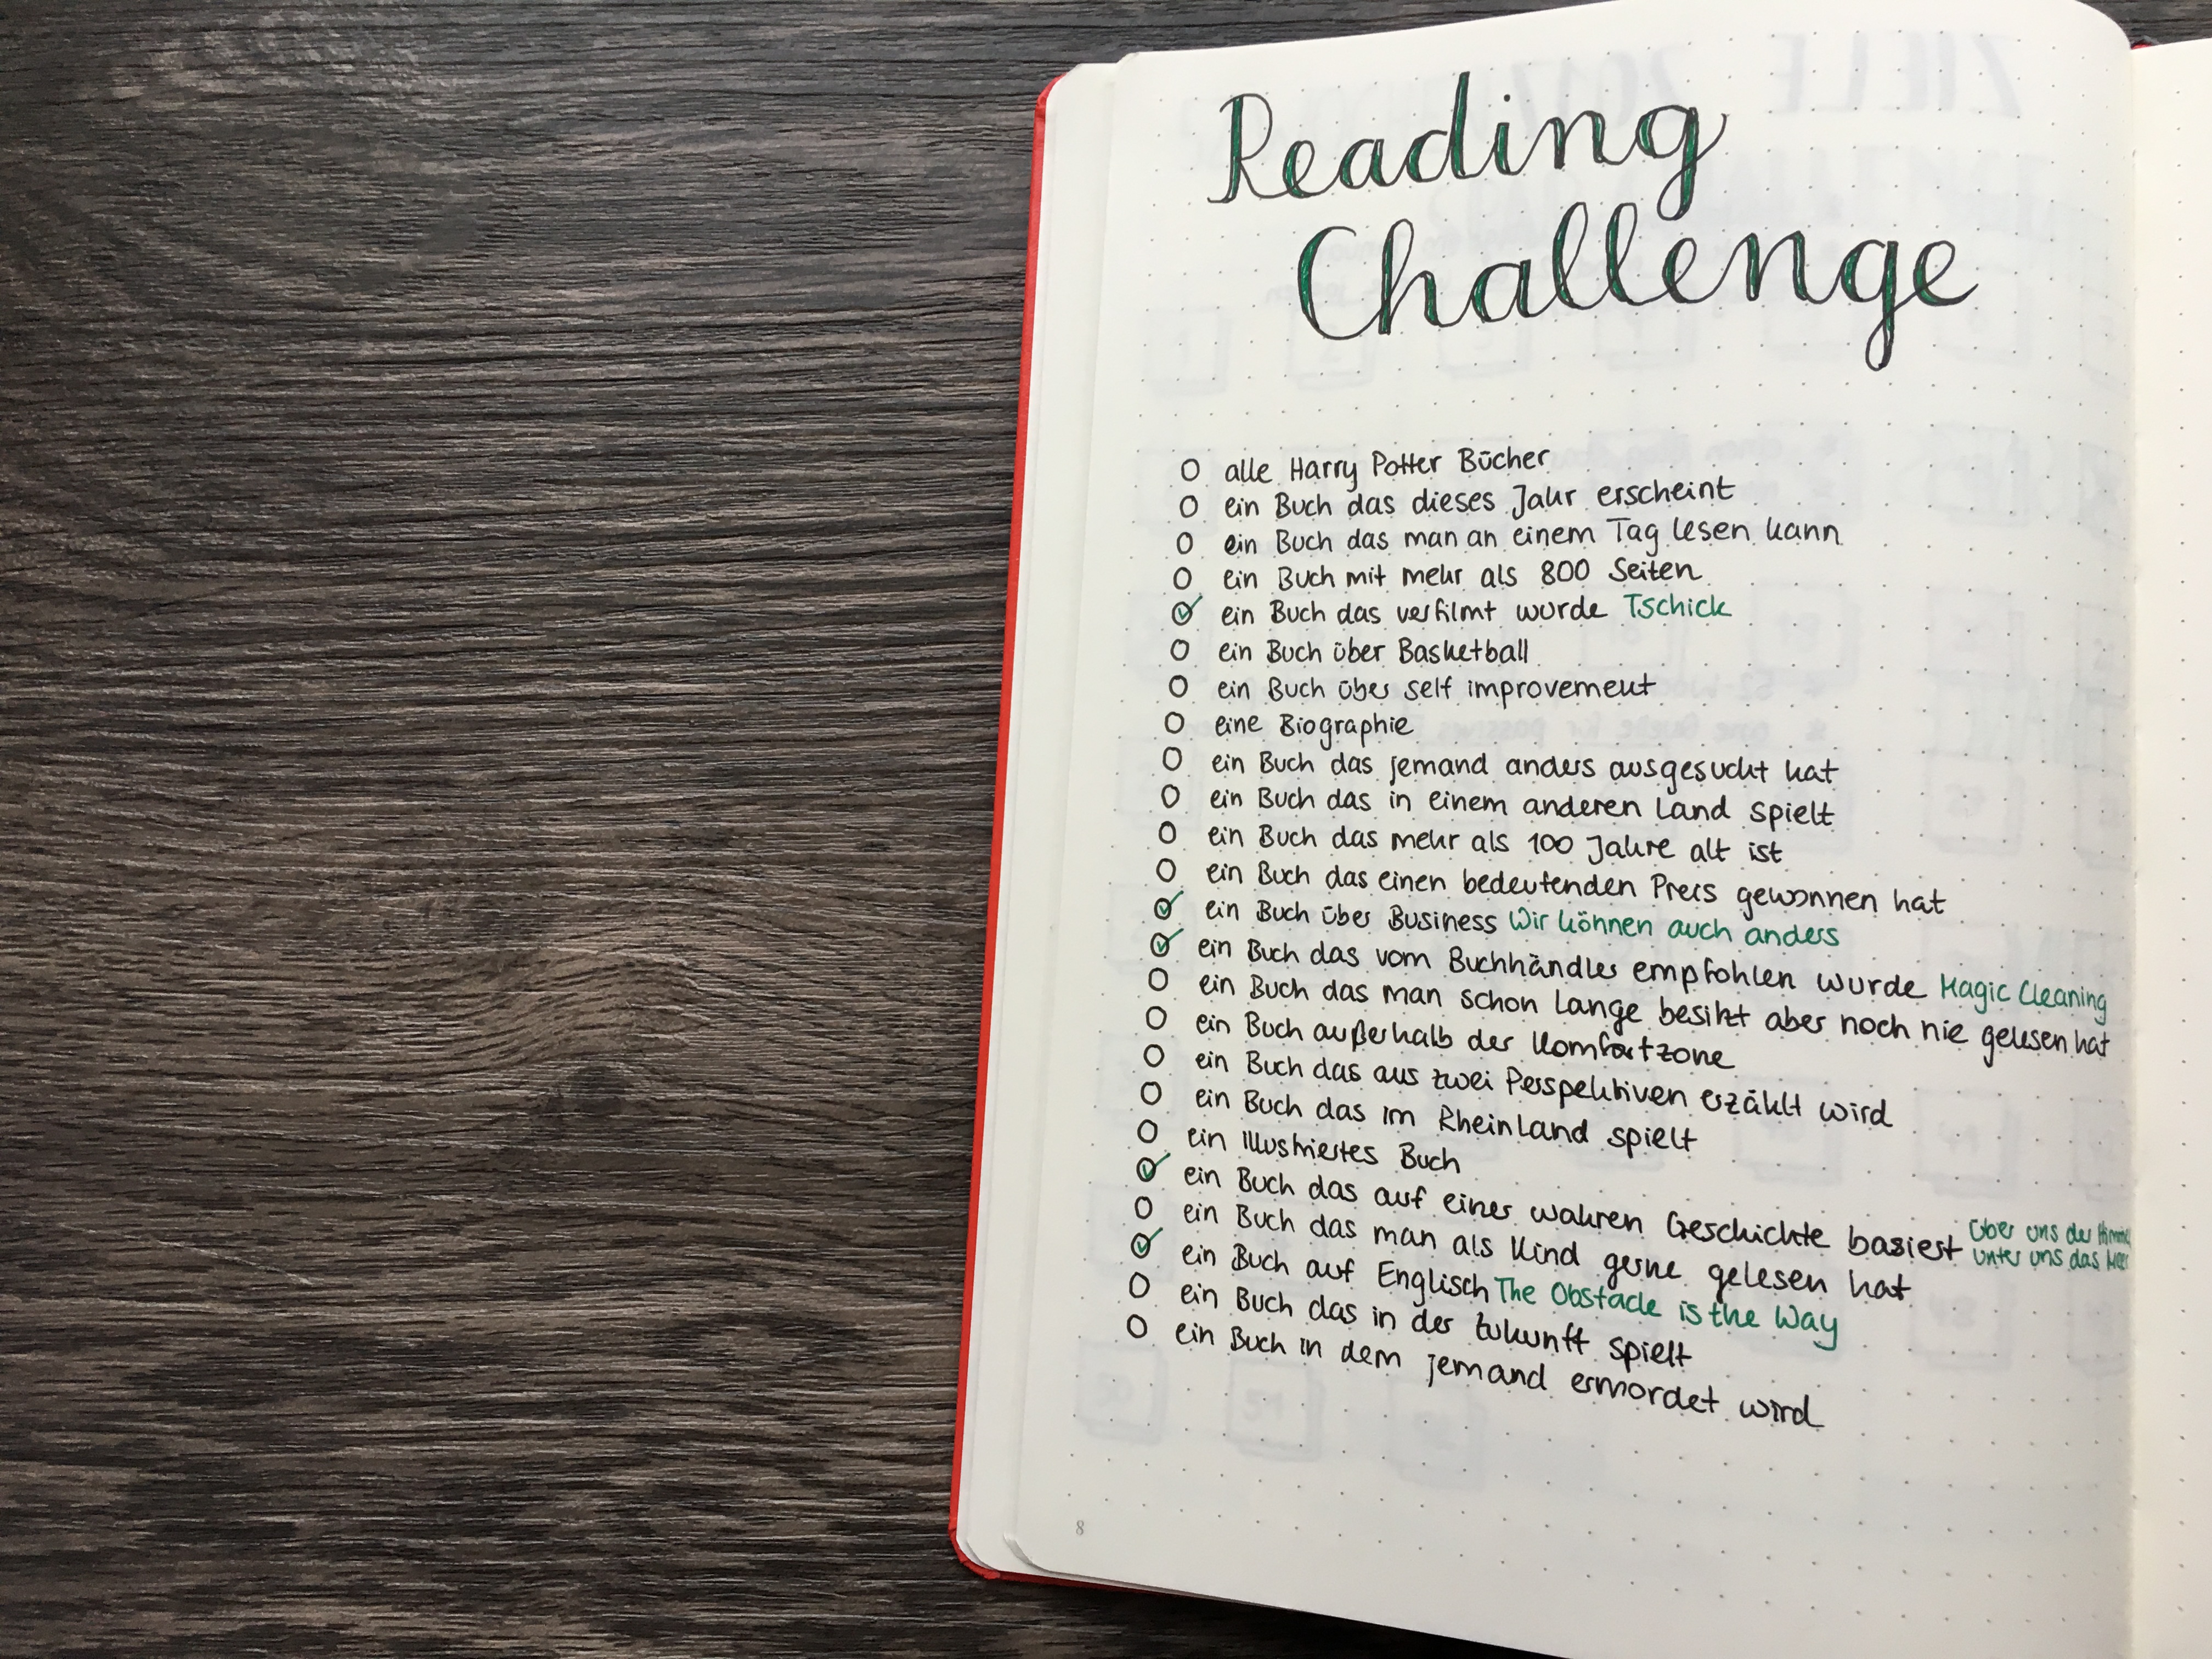 Reading
Challenge
alle Harry Potter Bücher
ein Buch das dieses Jahr erscheint
ein Buch das man an einem Tag lesen kann
ein Buch mit mehr als 800 Seiten
ein Buch das verfilmt wurde Tschick
ein Buch über Basketball
ein Buch über self improvement
eine Biographie
ein Buch das jemand anders ausgesucht hat
ein Buch das in einem anderen Land spielt
ein Buch das mehr als 100 Jahre alt ist
ein Buch das einen bedeutenden Preis gewonnen hat
ein Buch über Business Wir können auch anders
ein Buch das vom Buchhändler empfohlen wurde Magic Cleaning
ein Buch das man schon lange besitzt aber noch nie gelesen hat
ein Buch außerhalb der Komfortzone
ein Buch das aus zwei Perspektiven erzählt wird
ein Buch das im Rheinland spielt
ein illustriertes Buch
ein Buch das auf einer wahren Geschichte basiert Über uns der Himmel
unter uns das Meer
ein Buch das man als Kind gerne gelesen hat
ein Buch auf Englisch The Obstacle is the Way
ein Buch das in der Zukunft spielt
ein Buch in dem jemand ermordet wird
8